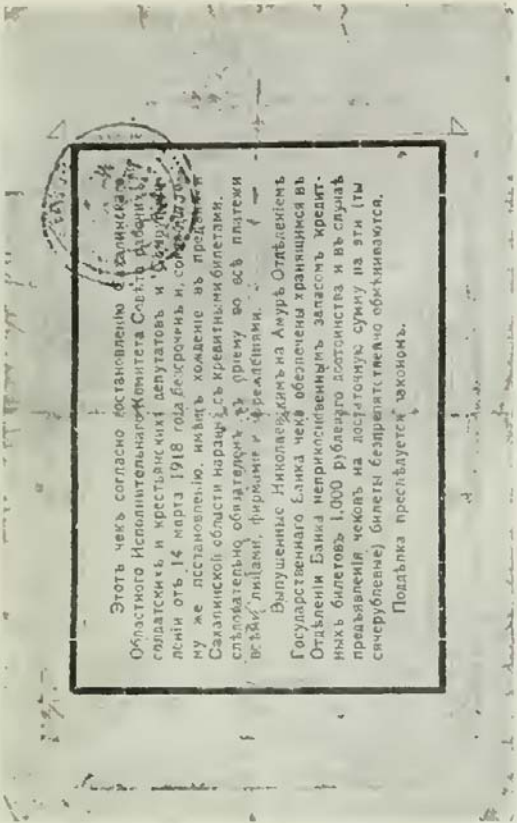 Этотъ чекъ согласно постановленію Сахалинскаго
Областного Исполнительнаго Комитета Совѣта рабочихъ,
солдатскихъ и крестьянскихъ депутатовъ и
леніи отъ 14 марта 1918 года безсроченъ и, согласно
му же постановленію, имѣетъ хожденіе въ предѣлахъ
Сахалинской области наравнѣ съ кредитными билетами,
слѣдовательно обязателенъ къ пріему во всѣ платежи
всѣми лицами, фирмами и учрежденіями.
Выпущенные Николаевскимъ на Амурѣ Отдѣленіемъ
Государственнаго Банка чеки обезпечены хранящимся въ
Отдѣленіи Банка неприкосновеннымъ запасомъ кредит-
ныхъ билетовъ 1,000 рублеваго достоинства и въ случаѣ
предъявленія чековъ на достаточную сумму на эти (ты
сячерублевые) билеты безпрепятственно обмѣниваются.
Поддѣлка преслѣдуется закономъ.